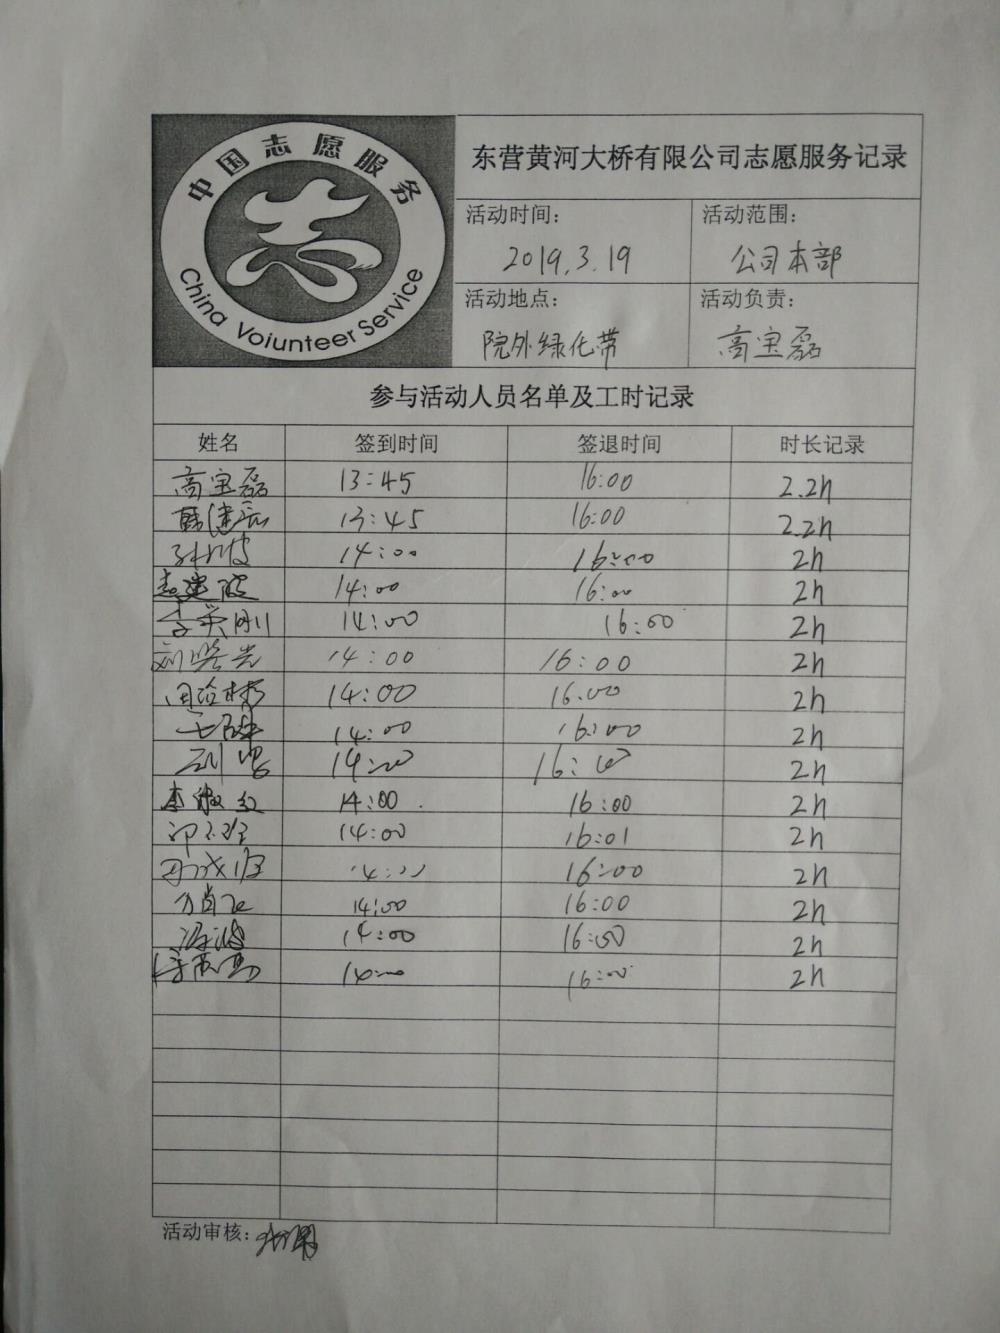 中国志愿服务
China Voiunteer Service
东营黄河大桥有限公司志愿服务记录
活动时间： 活动范围：
2019.3.19 公司本部
活动地点： 活动负责：
院外绿化带 高宝磊
参与活动人员名单及工时记录
姓名 签到时间 签退时间 时长记录
高宝磊 13:45 16:00 2.2h
13:45 16:00 2.2h
14:00 16:00 2h
14:00 16:00 2h
李英刚 14:00 16:00 2h
14:00 16:00 2h
14:00 16.00 2h
14:00 16:00 2h
14:00 16:00 2h
李淑红 14:00 16:00 2h
14:00 16:01 2h
14:00 16:00 2h
14:00 16:00 2h
14:00 16:00 2h
14:00 16:00 2h
活动审核：